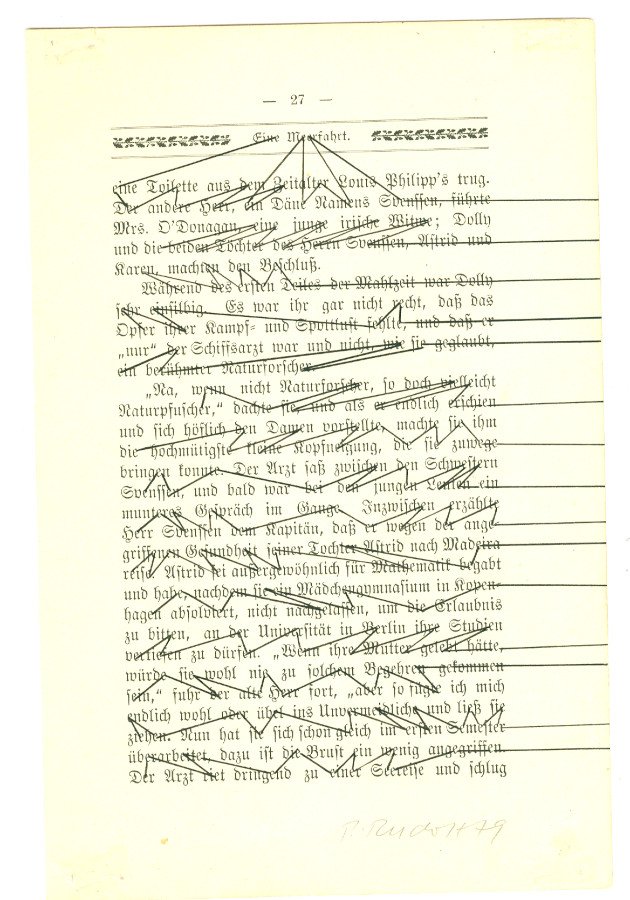 — 27 —
Eine Meerfahrt.
eine Toilette aus dem Zeitalter Louis Philipp's trug.
Der andere Herr, ein Däne Namens Svenssen, führte
Mrs. O'Donagan, eine junge irische Witwe; Dolly
und die beiden Töchter des Herrn Svenssen, Astrid und
Karen, machten den Beschluß.
Während des ersten Teiles der Mahlzeit war Dolly
sehr einsilbig. Es war ihr gar nicht recht, daß das
Opfer ihrer Kampf- und Spottlust fehlte, und daß er
„nur“ der Schiffsarzt war und nicht, wie sie geglaubt,
ein berühmter Naturforscher.
„Na, wenn nicht Naturforscher, so doch vielleicht
Naturpfuscher,“ dachte sie, und als er endlich erschien
und sich höflich den Damen vorstellte, machte sie ihm
die hochmütigste kleine Kopfneigung, die sie zuwege
bringen konnte. Der Arzt saß zwischen den Schwestern
Svenssen, und bald war bei den jungen Leuten ein
munteres Gespräch im Gange. Inzwischen erzählte
Herr Svenssen dem Kapitän, daß er wegen der ange-
griffenen Gesundheit seiner Tochter Astrid nach Madeira
reise. Astrid sei außergewöhnlich für Mathematik begabt
und habe, nachdem sie ein Mädchengymnasium in Kopen-
hagen absolviert, nicht nachgelassen, um die Erlaubnis
zu bitten, an der Universität in Berlin ihre Studien
vertiefen zu dürfen. „Wenn ihre Mutter gelebt hätte,
würde sie wohl nie zu solchem Begehren gekommen
sein,“ fuhr der alte Herr fort, „aber so fügte ich mich
endlich wohl oder übel ins Unvermeidliche und ließ sie
ziehen. Nun hat sie sich schon gleich im ersten Semester
überarbeitet, dazu ist die Brust ein wenig angegriffen.
Der Arzt riet dringend zu einer Seereise und schlug